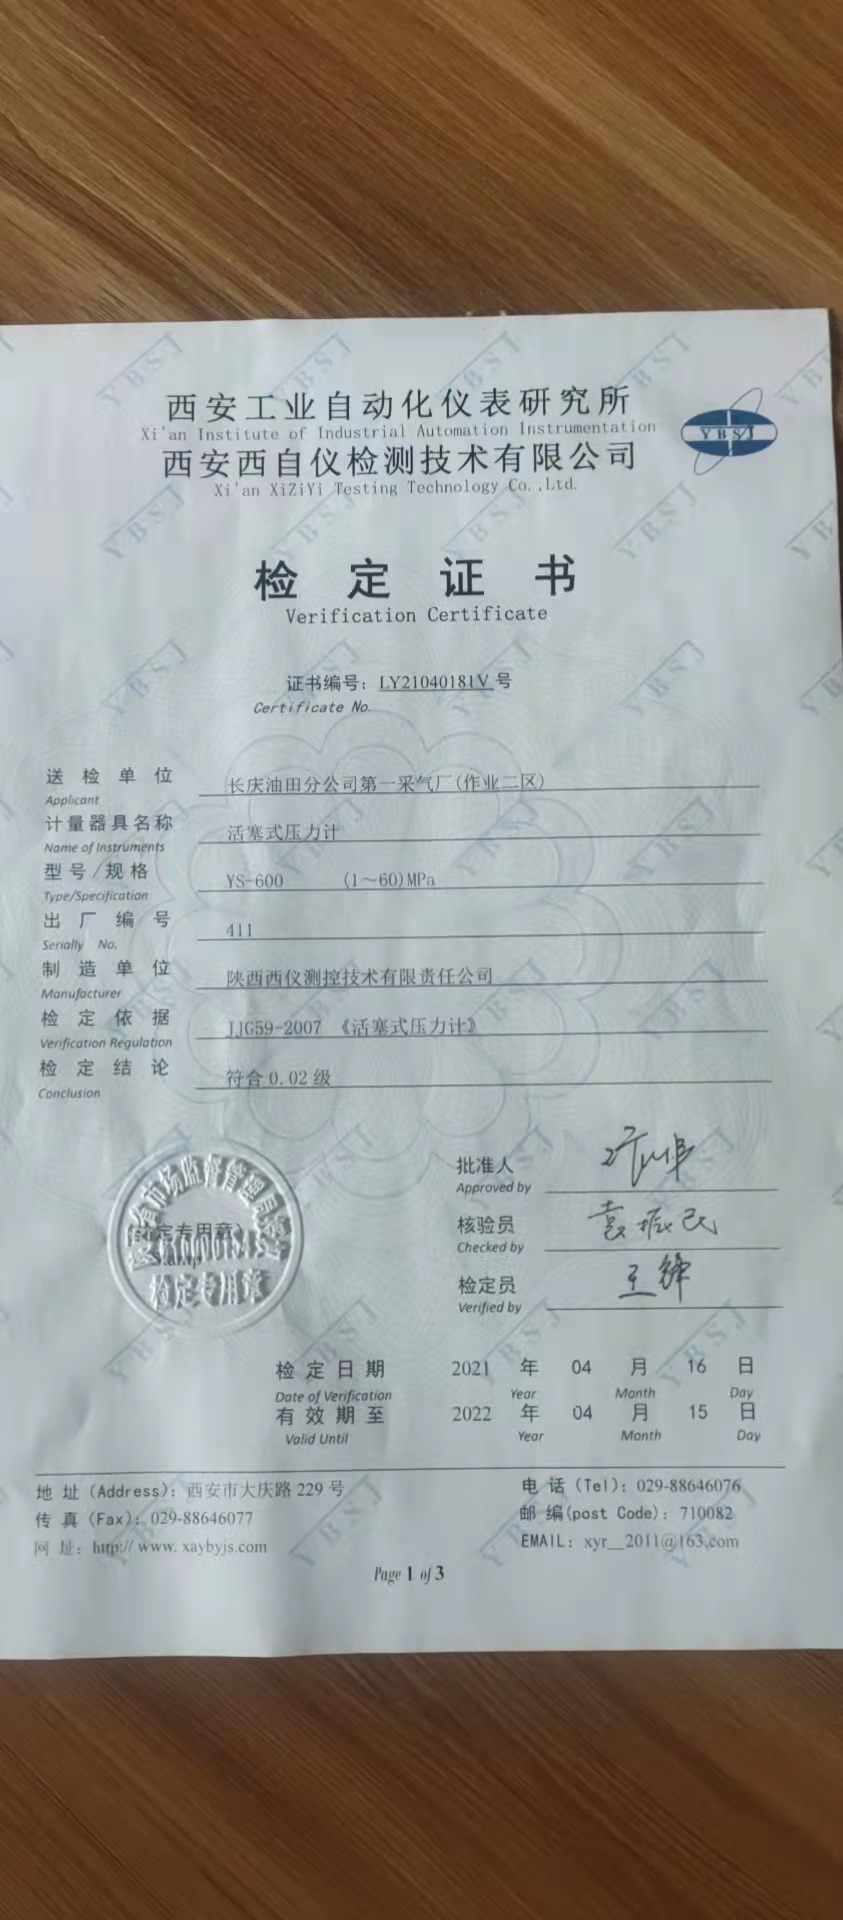 西安工业自动化仪表研究所
Xi'an Institute of Industrial Automation Instrumentation
西安西自仪检测技术有限公司
Xi'an XiZiYi Testing Technology Co.,Ltd.
YBSJ
检定证书
Verification Certificate
证书编号：LY21040181V 号
Certificate No.
送检单位 长庆油田分公司第一采气厂(作业二区)
Applicant
计量器具名称 活塞式压力计
Name of Instruments
型号/规格 YS-600 (1～60)MPa
Type/Specification
出厂编号 411
Serially No.
制造单位 陕西西仪测控技术有限责任公司
Manufacturer
检定依据 JJG59-2007 《活塞式压力计》
Verification Regulation
检定结论 符合0.02级
Conclusion
批准人
Approved by
核验员 袁振民
Checked by
检定员 王锋
Verified by
省市场监督管理局
定专用章）
检定专用章
检定日期 2021 年 04 月 16 日
Date of Verification Year Month Day
有效期至 2022 年 04 月 15 日
Valid Until Year Month Day
地址（Address）：西安市大庆路229号 电话（Tel）：029-88646076
传真（Fax）：029-88646077 邮编(post Code)：710082
网址：http://www.xaybyjs.com EMAIL：xyr__2011@163.com
Page 1 of 3